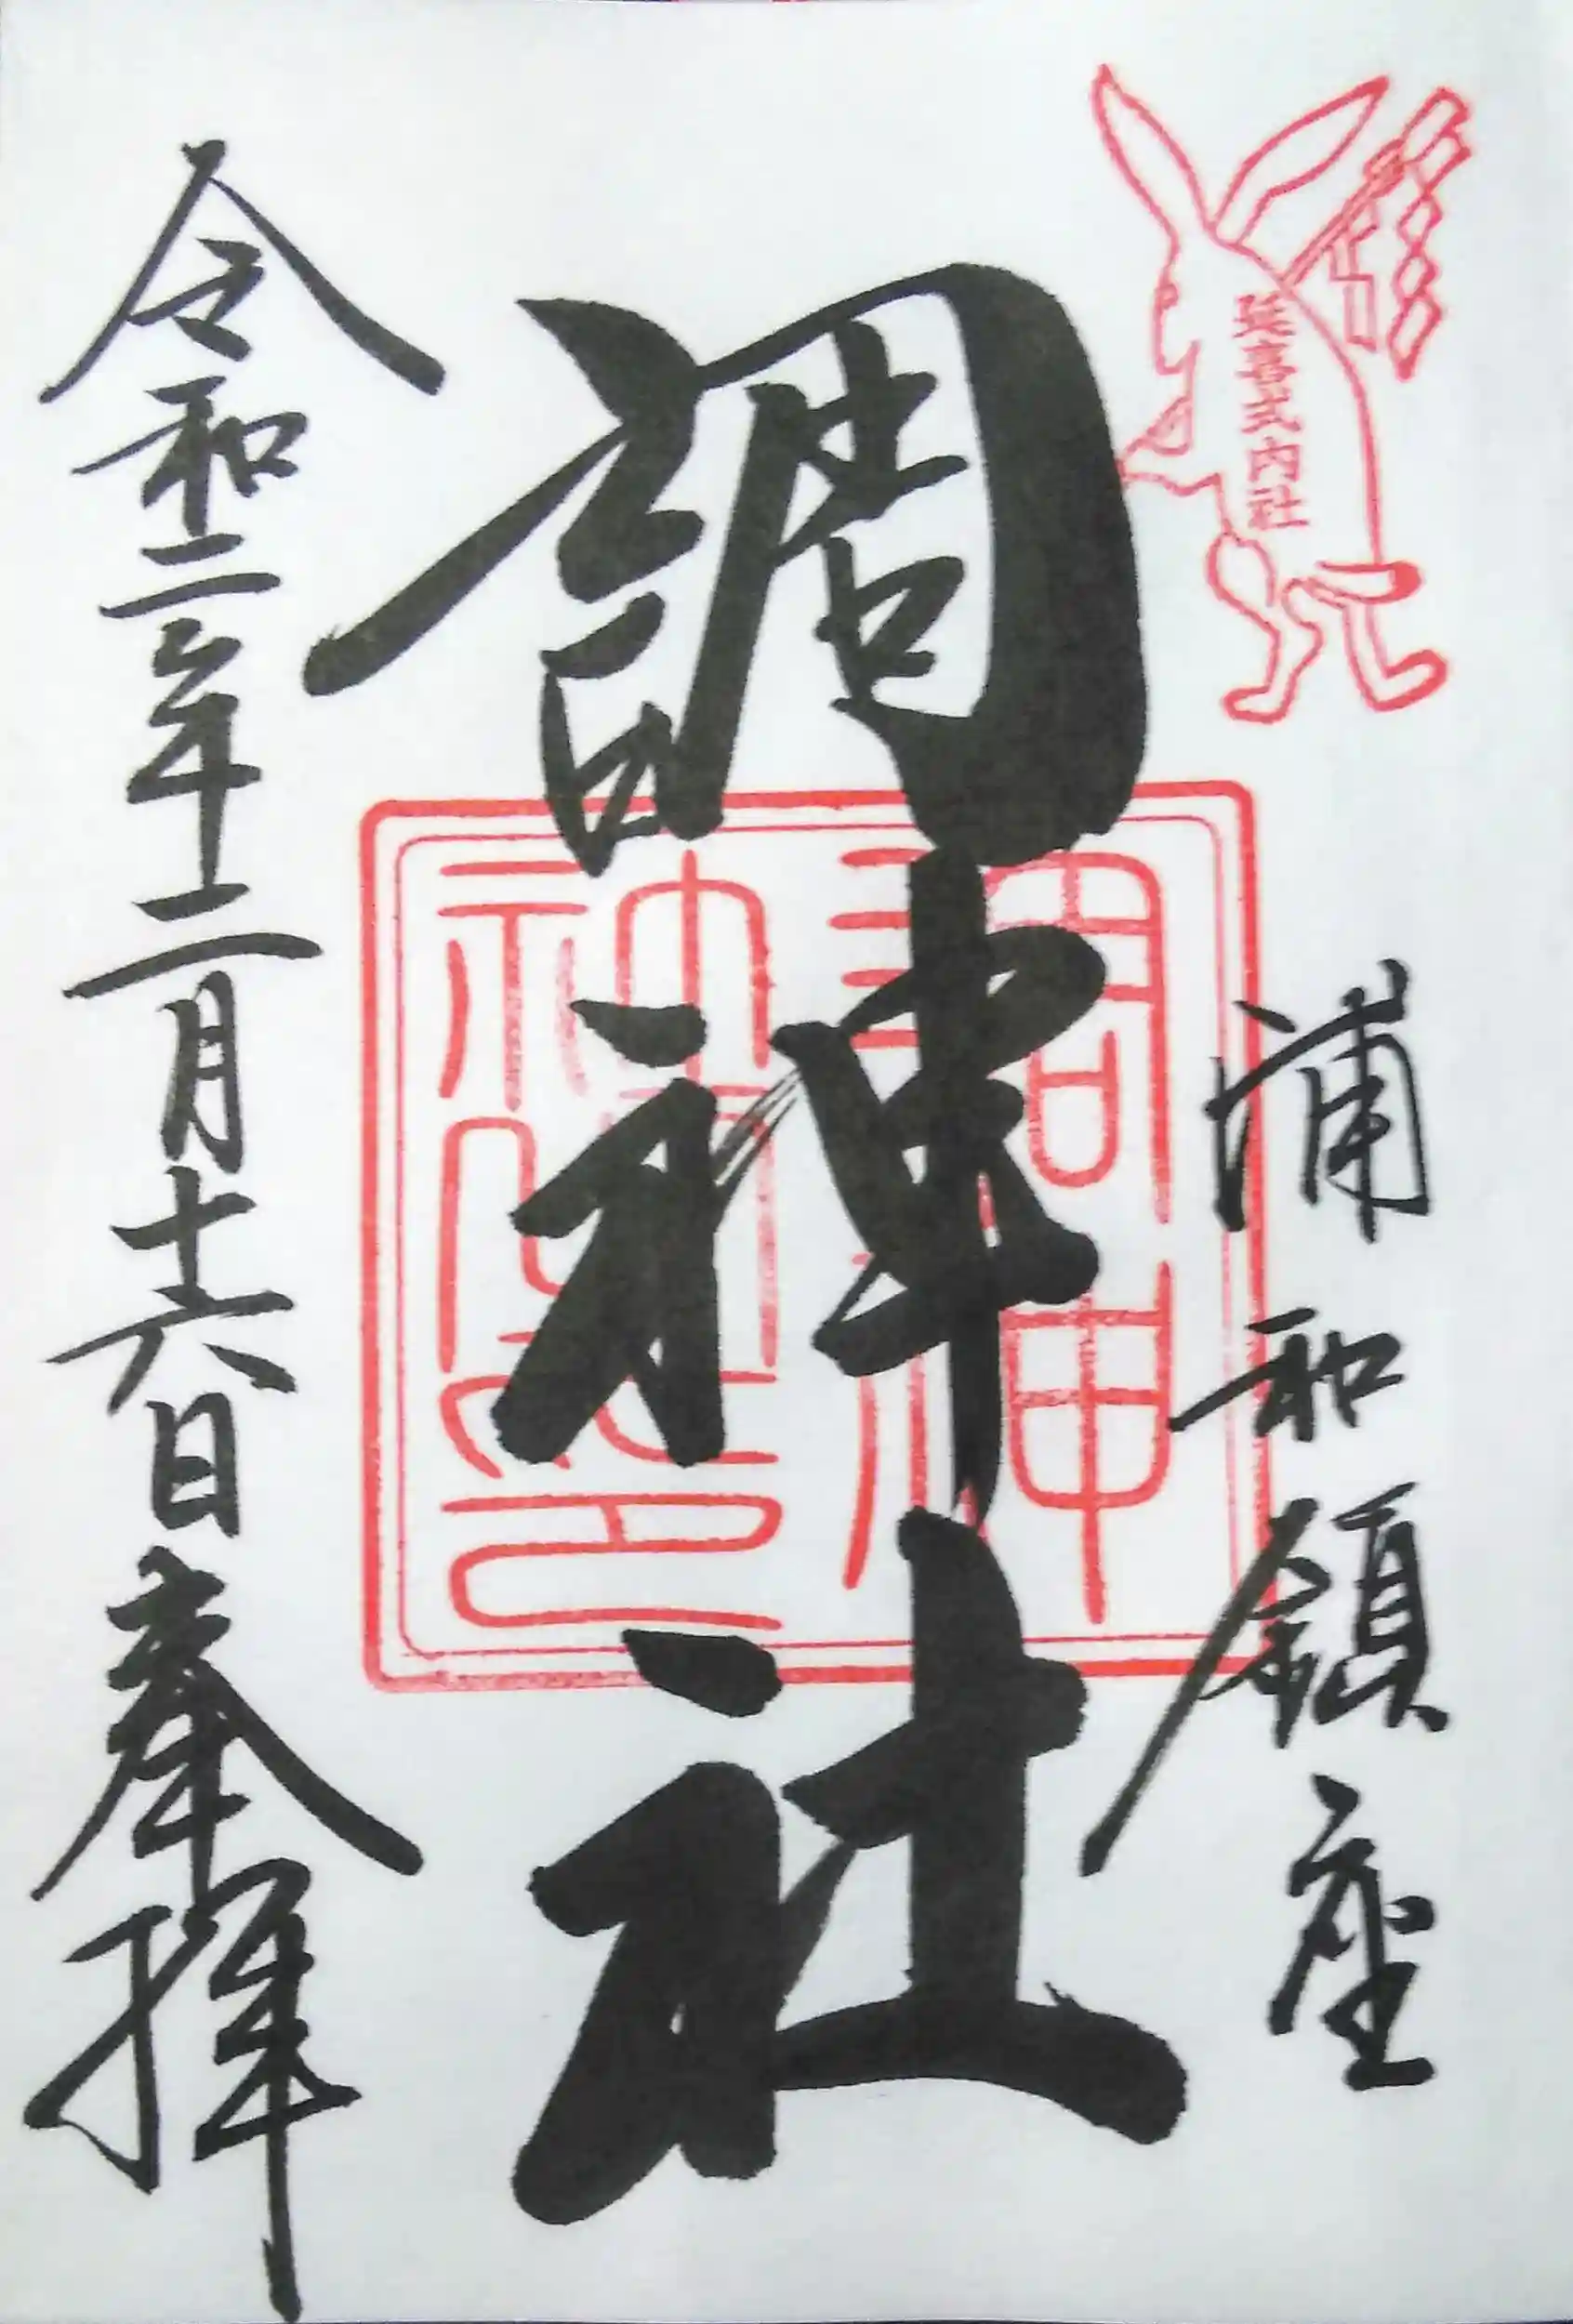 延喜式内社
浦和鎮座
調神社
令和二年二月十六日奉拝